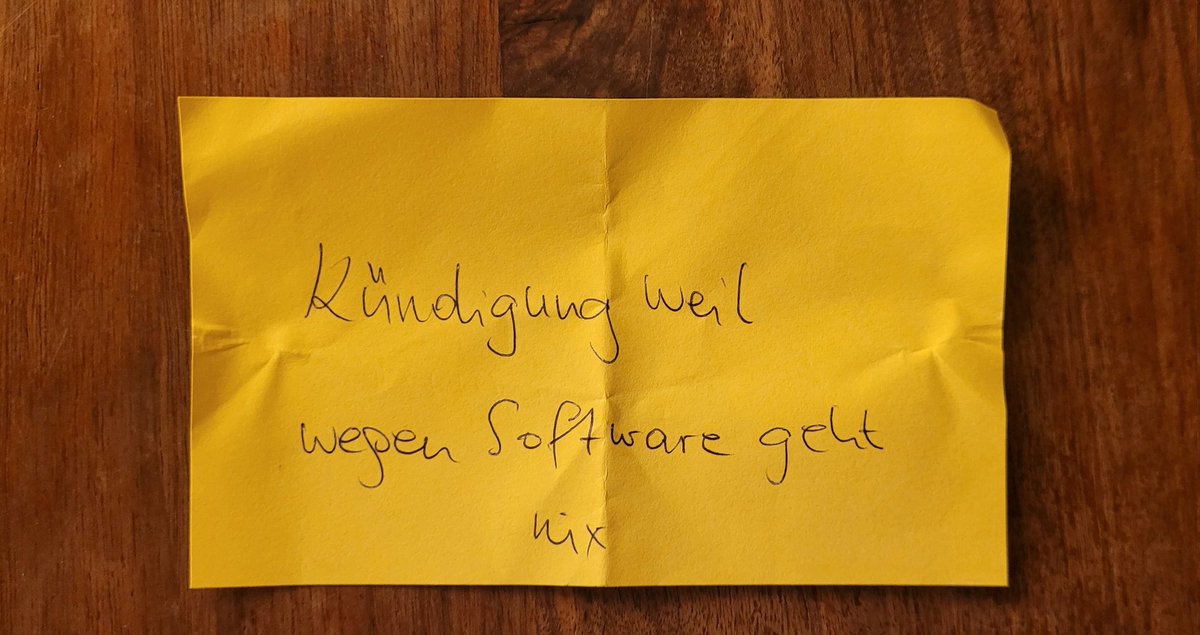 Kündigung weil
wegen Software geht
nix